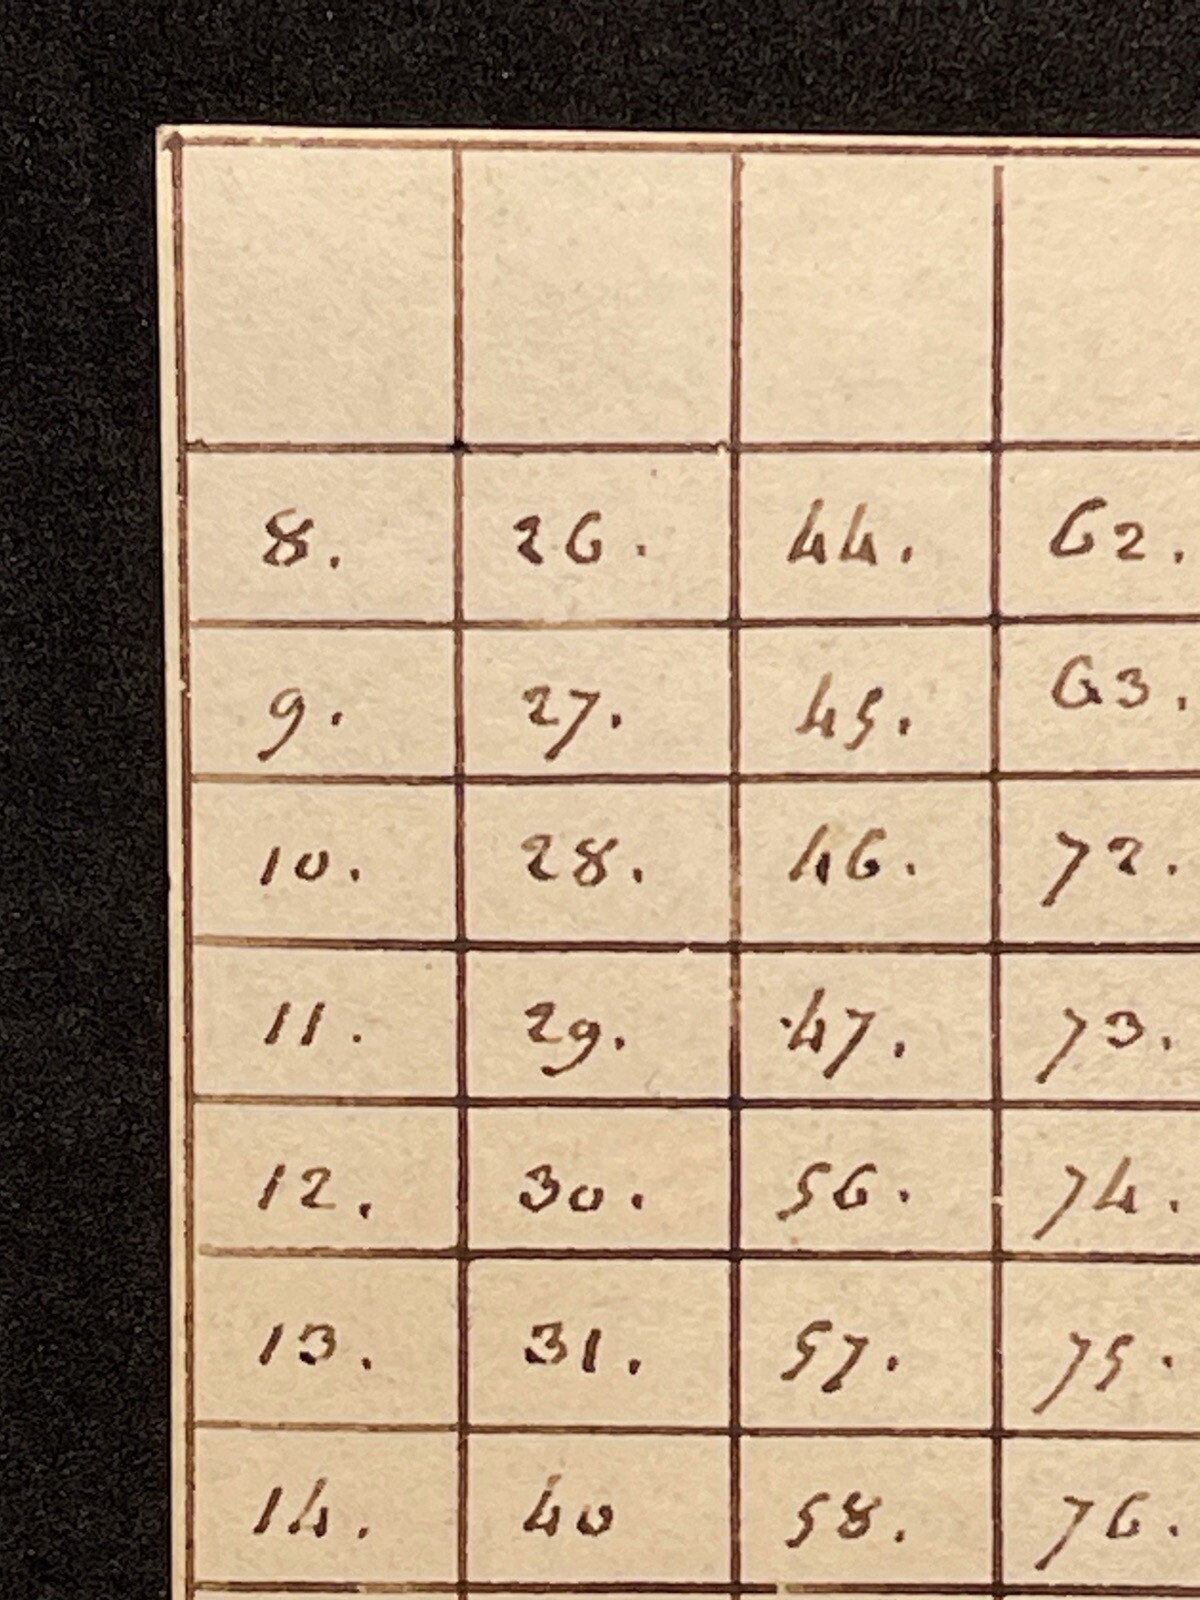 8. 26. 44. 62.
9. 27. 45. 63.
10. 28. 46. 72.
11. 29. 47. 73.
12. 30. 56. 74.
13. 31. 57. 75.
14. 40 58. 76.